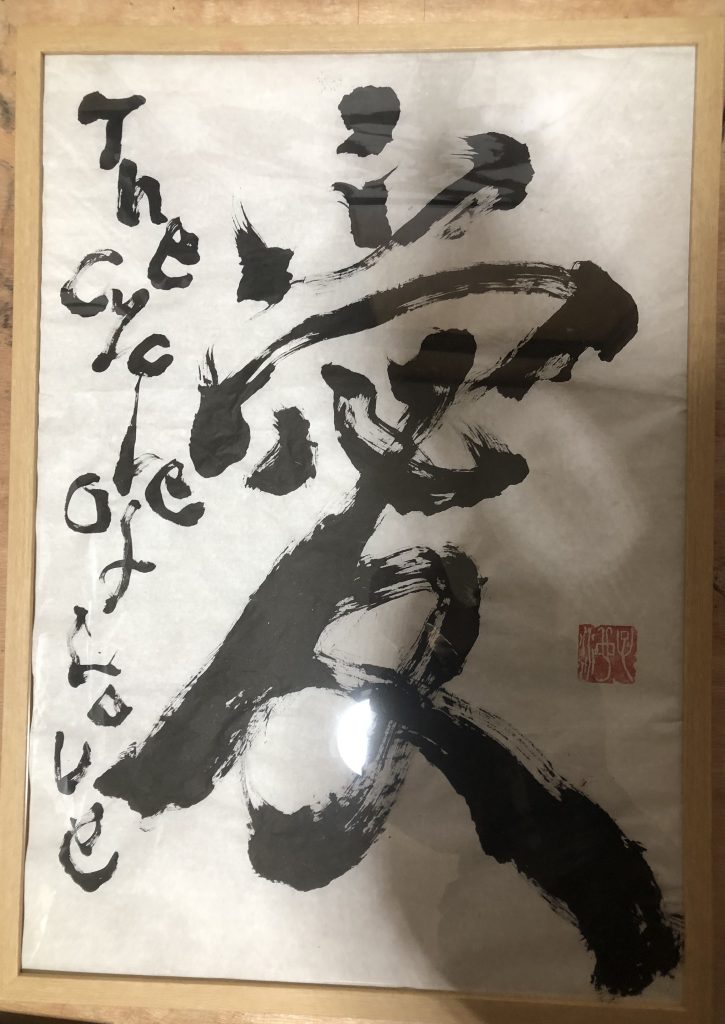 愛
The Cycle of Love